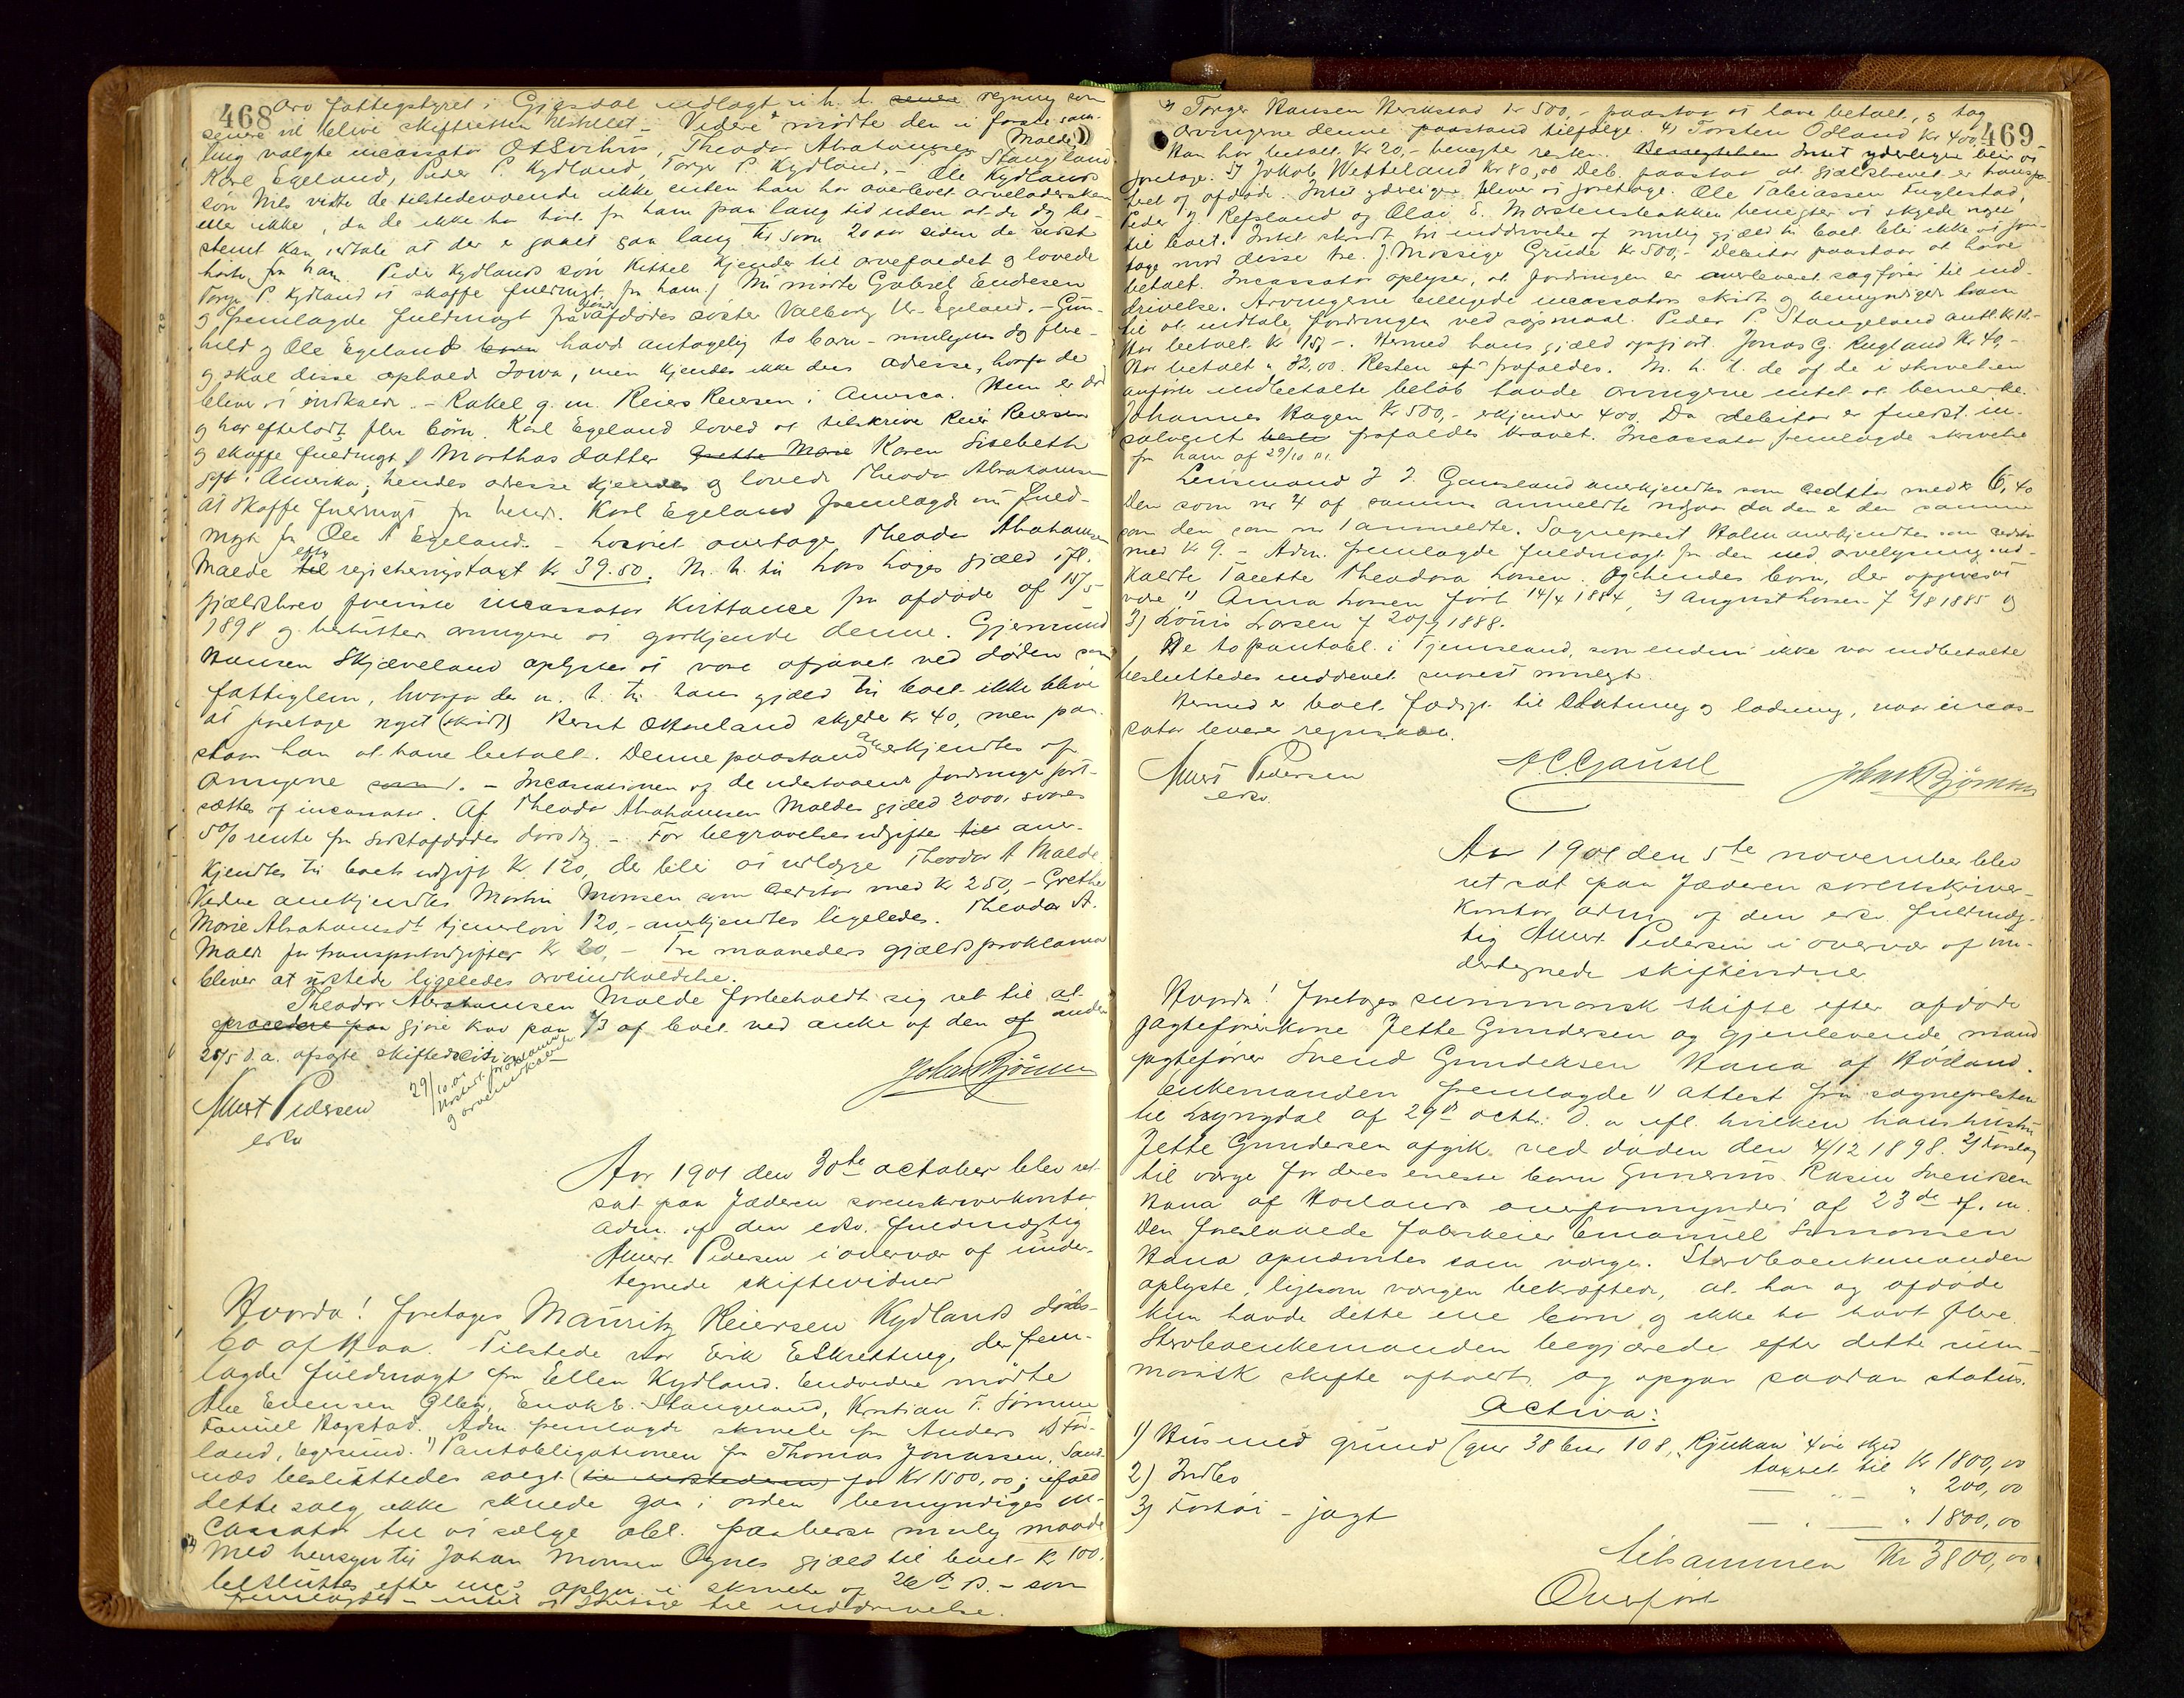 468
fattigstyret i Gjesdal udlagt m. h. t. senere regning som
senere vil blive skifteretten tilstillet. - Videre mødte den i første sam-
ling valgte incassator Theodor Abrahamsen Malde
Karl Egeland, Peder P. Kydland, Torger P. Kydland, - Ole Kydlands
søn Nils vidste de tilstedeværende ikke enten han har overlevet
eller ikke, da de ikke har hørt fra ham paa lang tid uden at de dog be-
stemt kan udtale at der er gaaet saa lang tid som 20 aar siden de sidst
hørte fra ham. Peder Kydlands søn Kittel kjender til arvefaldet og lovede
Torger P. Kydland at skaffe fuldmagt fra ham. Nu mødte Gabriel Endresen
og fremlagde fuldmagt fra afdødes søster Valborg Egeland. - Gun-
hild og Ole Egeland havde antagelig to barn - muligens dog flere -
og skal disse ophold Iowa, men kjendes ikke deres adresse, hvorfor de
bliver at indkalde. - Rakel g. m. Reiers Reiersen i America. Hun er død
og har efterladt flere børn. Karl Egeland loved at tilskrive Reier Reiersen
og skaffe fuldmagt. Marthas datter Grethe Marie Karen Lisebeth
gift i Amerika, hendes adresse kjendes og lovede Theodor Abrahamsen
at skaffe fuldmagt fra hende. Karl Egeland fremlagde nu fuld-
magt fra Ole A Egeland. - Løsøret overtoges Theodor Abrahamsen
Malde til efter registreringstaxt Kr 39.50. M. h. til Lars Løges gjæld ifl.
gjældsbrev foreviste incassator Kvittance fra afdøde af 15/5
1898 og beslutter arvingene at godkjende denne. Gjermund
Hansen Skjæveland oplystes at være afgaaet ved døden som
fattiglem, hvorfor der m. h. til hans gjæld til boet ikke bliver
at foretage noget (skridt). Bernt skylder kr 40, men paa-
staar han at have betalt. Denne paastand anerkjendtes af
arvingene - Incassationen af de udestaaende fordringer fort-
sættes af incassator. Af Theodor Abrahamsen Maldes gjæld 2000, svares
5% rente fra sidstafdødes dødsdag. - For begravelsesudgifter til aner-
kjendtes til boets udgift Kr. 120, der blir at udlægge Theodor A Malde.
Videre anerkjendtes Martin Monsen som creditor med Kr 250, - Grethe
Marie Abrahamsdt tjenerløn 120, - anerkjendtes ligeledes. Theodor A.
Malde for transportudgifter Kr 20, - Tre maaneders gjældsproklama
bliver at udstede ligeledes arveindkaldelse.
Theodor Abrahamsen Malde forbeholdt sig ret til at
procedere paa gjøre krav paa 1/3 af boet ved anke af den af anden
25/5 d. a. afsagte skiftedecision
Johan Bjørnsen
29/10.01
udstedt proklama
og arveindkald
Albert Pedersen
edsv
Aar 1901 den 30te october blev ret
sat paa Jæderen sorenskriverkontor
adm. af den edsv. fuldmægtig
Albert Pedersen i overvær af under-
tegnede skiftevidner
Hvorda! foretoges Mauritz Reiersen Kydlands døds-
bo af Haa. Tilstede var Erik Eskretting, der frem-
lagde fuldmagt fra Ellen Kydland. Endvidere mødte
Ole Evensen Enok E. Stangeland, Kristian T.
Adm. fremlagde skrivelse fra Anders
land, Egersund. 1) Pantobligationen fra Thomas Jonassen, Sand-
næs besluttedes solgt for Kr 1500,00; ifald
dette salg ikke skulde gaa i orden bemyndiges in-
cassator til at sælge obl. paa bedst mulig maade
2) Med hensyn til Johan Monsen Ognes gjæld til boet Kr 100.
besluttes efter oplysn. i skrivelse af 26de ds. - som
fremlagdes - intet at foretage til inddrivelse.
469
3) Torger Hansen Kr 500, - paastaar at have betalt, og tog
arvingerne denne paastand tilfølge. 4) Torsten Ødland Kr 400,
Han har betalt Kr 20, - benegter resten. Intet yderligere blir at
foretage. 5) Jakob Wetteland Kr 80,00 Deb. paastaar at gjældsbrevet er
af afdøde. Intet yderligere bliver at foretage. Ole Tobiassen Fuglestad,
Peder J. Refsland og Olai E. benegter at skylde noget
til boet. Intet skridt til inddrivelse af mulig gjæld til boet blir ikke at fore-
tage mod disse tre. J. Mossige Grude Kr 500, - Debitor paastaar at have
betalt. Incassator oplyser, at fordringen er overleveret sagfører til ind-
drivelse. Arvingerne billigede incassators skridt og bemyndiger ham
til at indtale fordringen ved søgsmaal. Peder P. Stangeland
Har betalt Kr 15, -. Hermed hans gjæld opgjort. Jonas G. Rugland Kr 40, -
Har betalt " 32,00. Resten frafaldes. M. h. t. de af de i skrivelsen
anførte indbetalte beløb havde arvingerne intet at bemerke.
Johannes Hagen Kr 500, - erkjender 400. Da debitor er fuldst. in-
solvent frafaldes kravet. Incassator fremlagde skrivelse
fra ham af 29/10 01.
Lensmand J J. Gausland anerkjendtes som creditor med kr 6,40
Den som nr 4 af samme anmeldte udgaar da den er den samme
som den som nr 1 anmeldte. Sogneprest Holm anerkjendtes som creditor
med Kr 9. - Adm. fremlagde fuldmagt fra den ved arvelysning ind-
kaldte Tarette Theodora Larsen. Og hendes børn, der opgives at
være 1) Anna Larsen født 14/4 1884, 2) August Larsen f 2/8 1885 og
3) Louis Larsen f 20/9 1888.
De to pantobl. i Tjemsland, som endnu ikke var indbetalte
besluttedes inddrevet snarest muligt.
Hermed er boet færdigt til slutning og lodning, naar incas-
sator leverer regnskab.
Albert Pedersen
edsv.
A. C. Gausel
Johan Bjørnsen
Aar 1901 den 5te november blev
ret sat paa Jæderen sorenskriver-
kontor adm. af den edsv. fuldmæg-
tig Albert Pedersen i overvær af un-
dertegnede skiftevidner
Hvorda! foretoges summarisk skifte efter afdøde
jagteførerkone Jette Gundersen og gjenlevende mand
jagtefører Svend Gundersen Hana af Høiland.
Enkemanden fremlagde 1) attest fra sognepresten
til Lyngdal af 29de octbr. d. a ifl. hvilken hans hustru
Jette Gundersen afgik ved døden den 4/12 1898. 2) Forslag
til værge for deres eneste barn Gunerius Rasin Svendsen
Hana af Høilands overformynderi af 23de f. m.
Den foreslaaede Fabrikeier Emanuel Simonsen
Hana opnævntes som værge. Stervboenkemanden
oplyste, ligesom værgen bekræftede, at han og afdøde
kun havde dette ene barn og ikke har havt flere.
Stervboenkemanden begjærede efter dette sum-
marisk skifte afholdt og opgav saadan status.
Activa:
1) Hus med grund (gnr 38 bnr 108, "Rjukan" 4 øre skyld
taxeret til Kr 1800,00
2) Indbo — " — " 200,00
3) Fartøi - jagt — " — " 1800,00
tilsammen Kr 3800,00
Overført